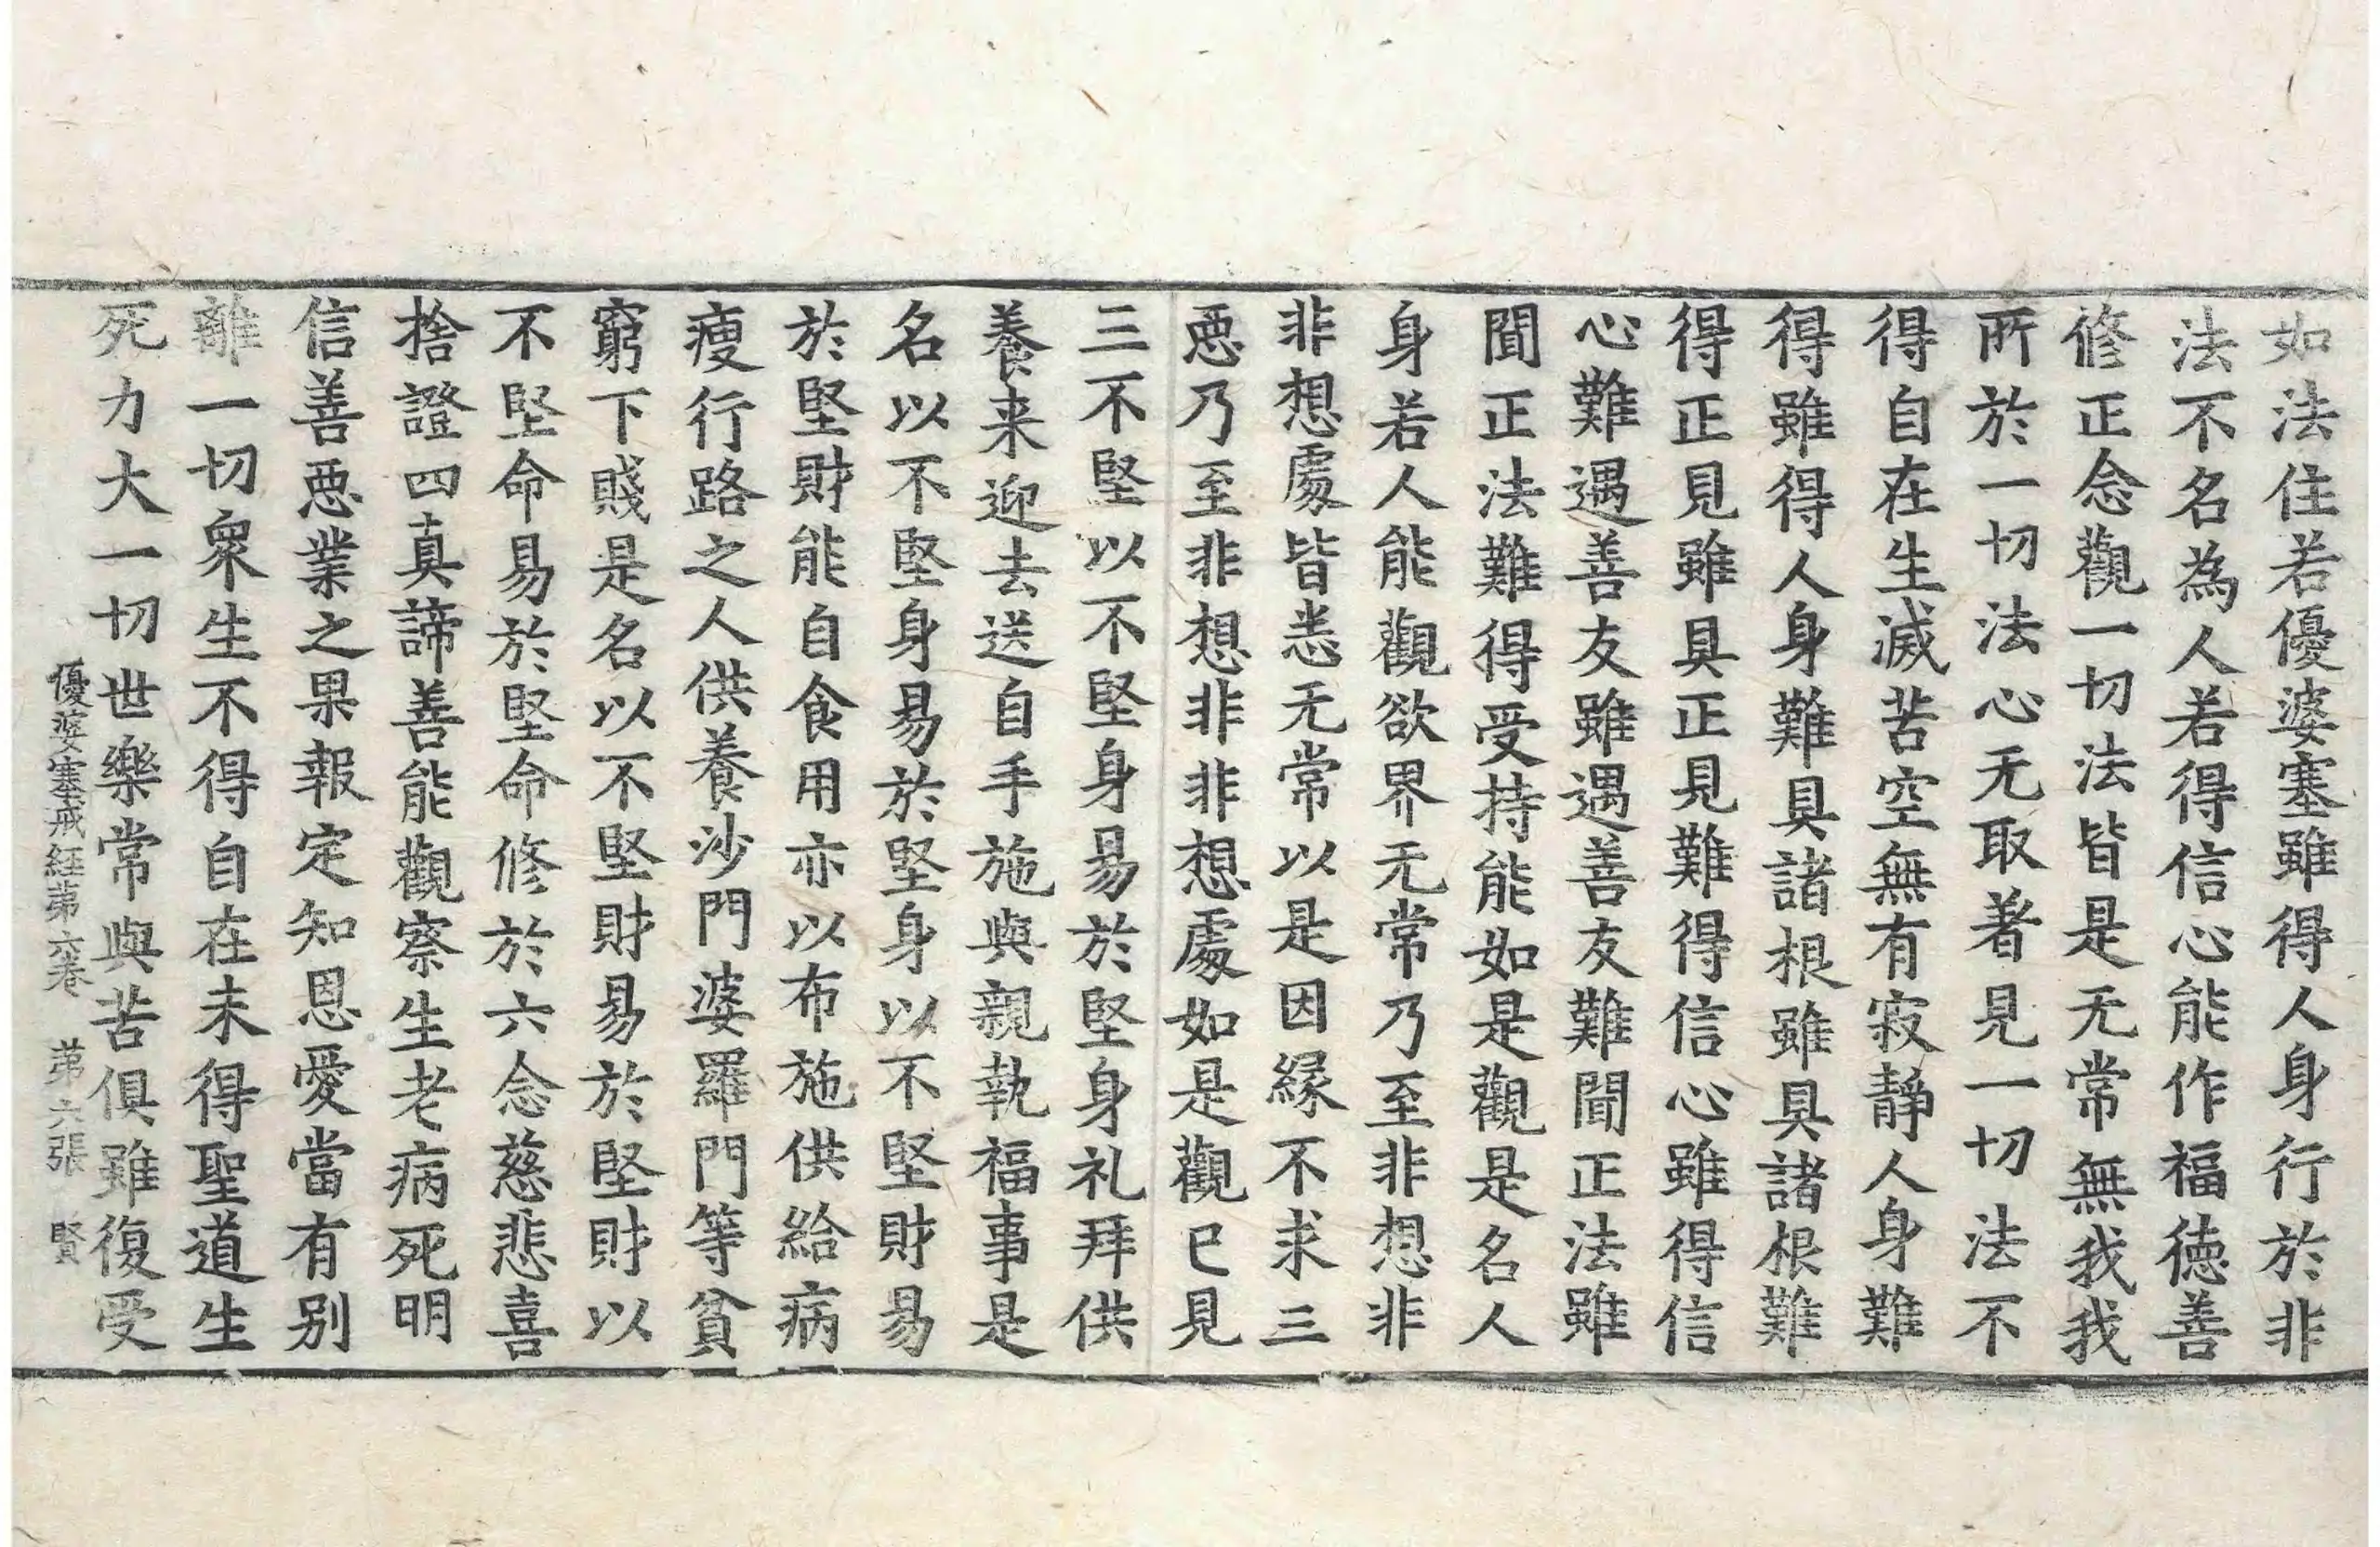 如法住若優婆塞雖得人身行於非
法不名為人若得信心能作福徳善
修正念觀一切法皆是无常無我我
所於一切法心无取著見一切法不
得自在生滅苦空無有寂靜人身難
得雖得人身難具諸根雖具諸根難
得正見雖具正見難得信心雖得信
心難遇善友雖遇善友難聞正法雖
聞正法難得受持能如是觀是名人
身若人能觀欲界无常乃至非想非
非想處皆悉无常以是因縁不求三
惡乃至非想非非想處如是觀已見
三不堅以不堅身易於堅身礼拜供
養来迎去送自手施與親執福事是
名以不堅身易於堅身以不堅財易
於堅財能自食用亦以布施供給病
瘦行路之人供養沙門婆羅門等貧
窮下賤是名以不堅財易於堅財以
不堅命易於堅命修於六念慈悲喜
捨證四真諦善能觀察生老病死明
信善惡業之果報定知恩愛當有別
離一切衆生不得自在未得聖道生
死力大一切世樂常與苦俱雖復受
優婆塞戒経第六卷 第六張 賢